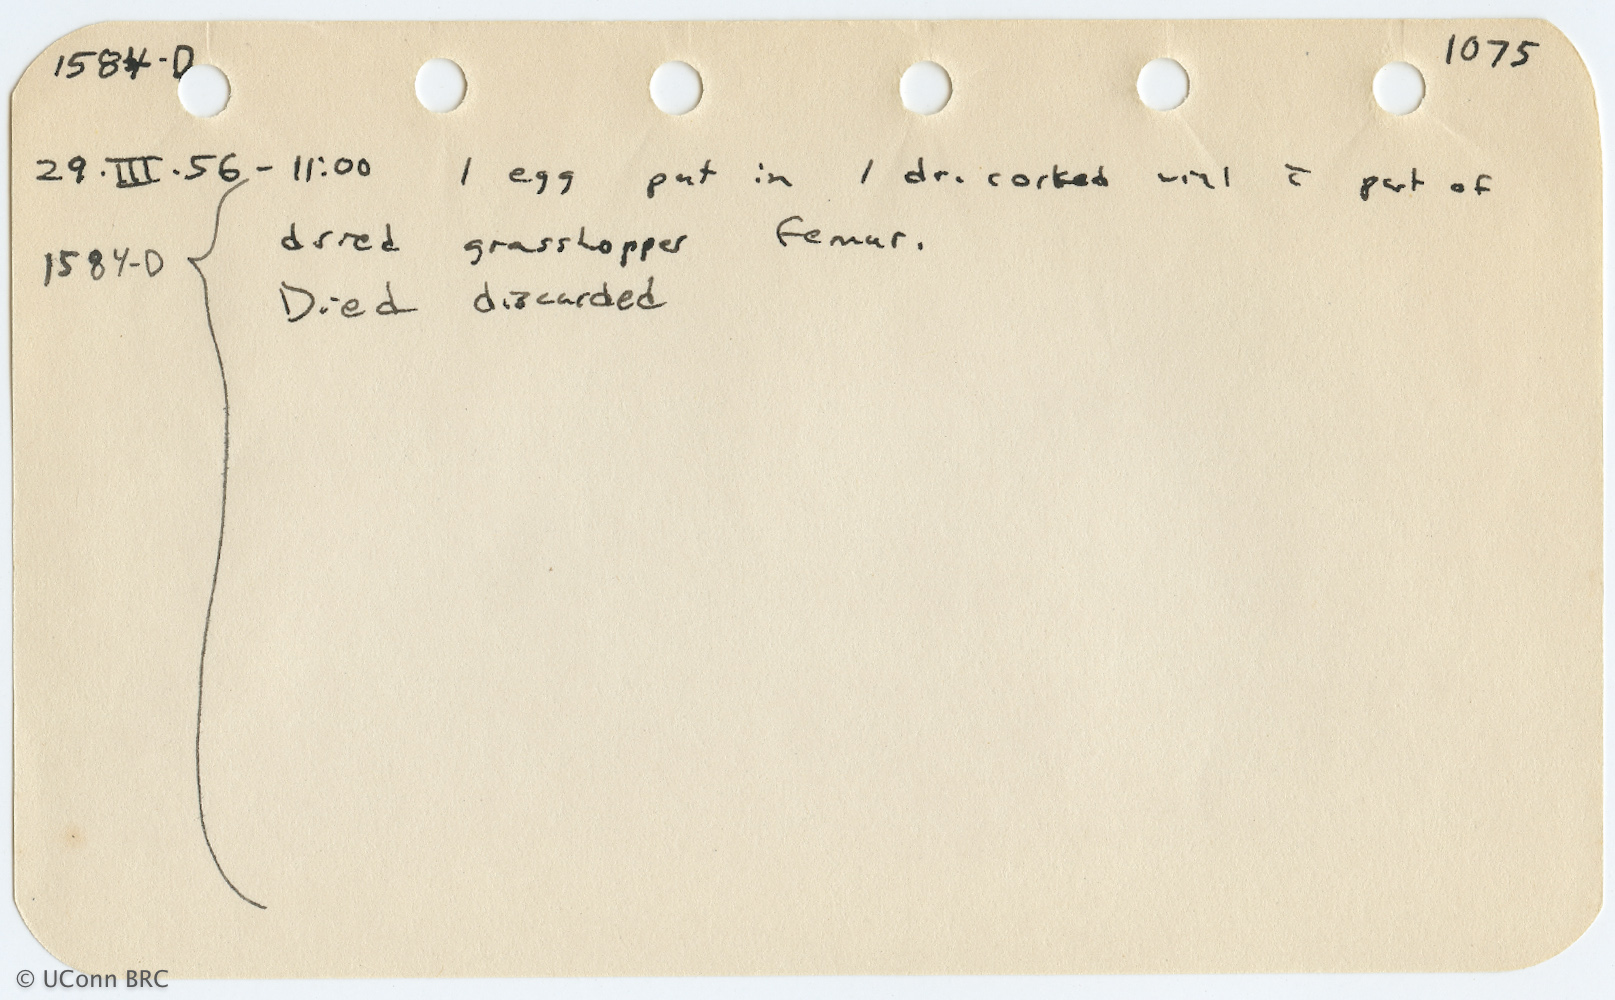 1584-D 1075
29.III.56 - 11:00 1 egg put in 1 dr. corked vial c̄ part of
1584-D dried grasshopper femur.
Died discarded
© UConn BRC